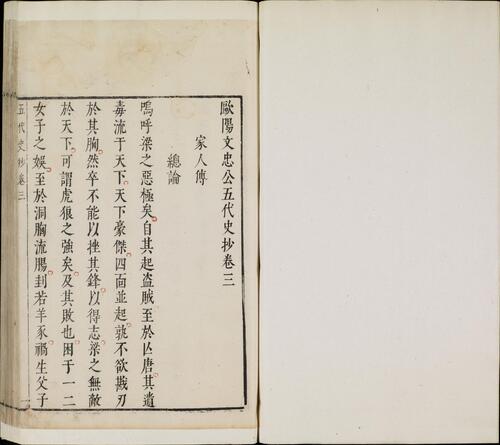 歐陽文忠公五代史抄卷三
家人傳
總論
嗚呼梁之惡極矣自其起盗賊至於亾唐其遺
毒流于天下天下豪傑四面並起孰不欲戡刃
於其胸然卒不能以挫其鋒以得志梁之無敵
於天下可謂虎狼之強矣及其敗也困于一二
女子之娛至於洞胸流膓刲若羊豕禍生父子
五代史抄卷三
一